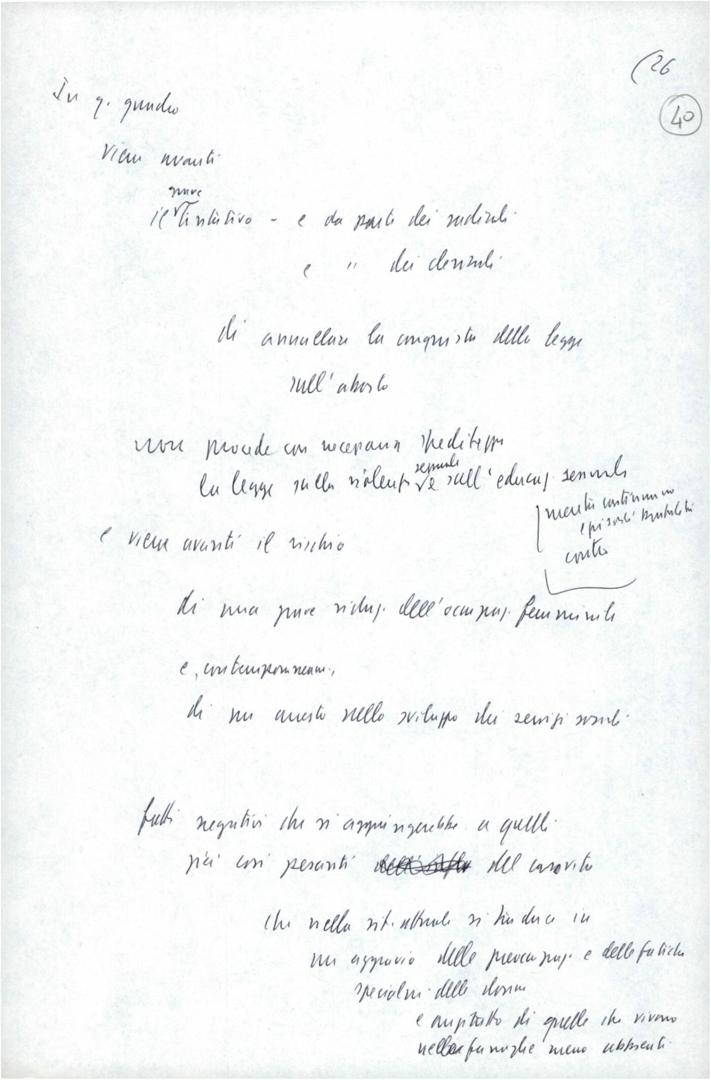 (26
40
In q. quadro
viene avanti
grave
il tentativo - e da parte dei radicali
e " dei clericali
di annullare la conquista della legge
sull'aborto
non procede con necessaria speditezza
sessuale
la legge sulla violenza e sull'educaz. sessuale
mentre continuano
episodi
contro
e viene avanti il rischio
di una grave riduz. dell'occupaz. femminile
e, contemporaneam.,
di un arresto nello sviluppo dei servizi sociali
fatti negativi che si aggiungerebbe a quelli
più così pesanti del carovita
che nella sit. attuale si traduce in
un aggravio delle preoccupaz. e delle fatiche
specialm. delle donne
e soprattutto di quelle che vivono
nelle famiglie meno abbienti.